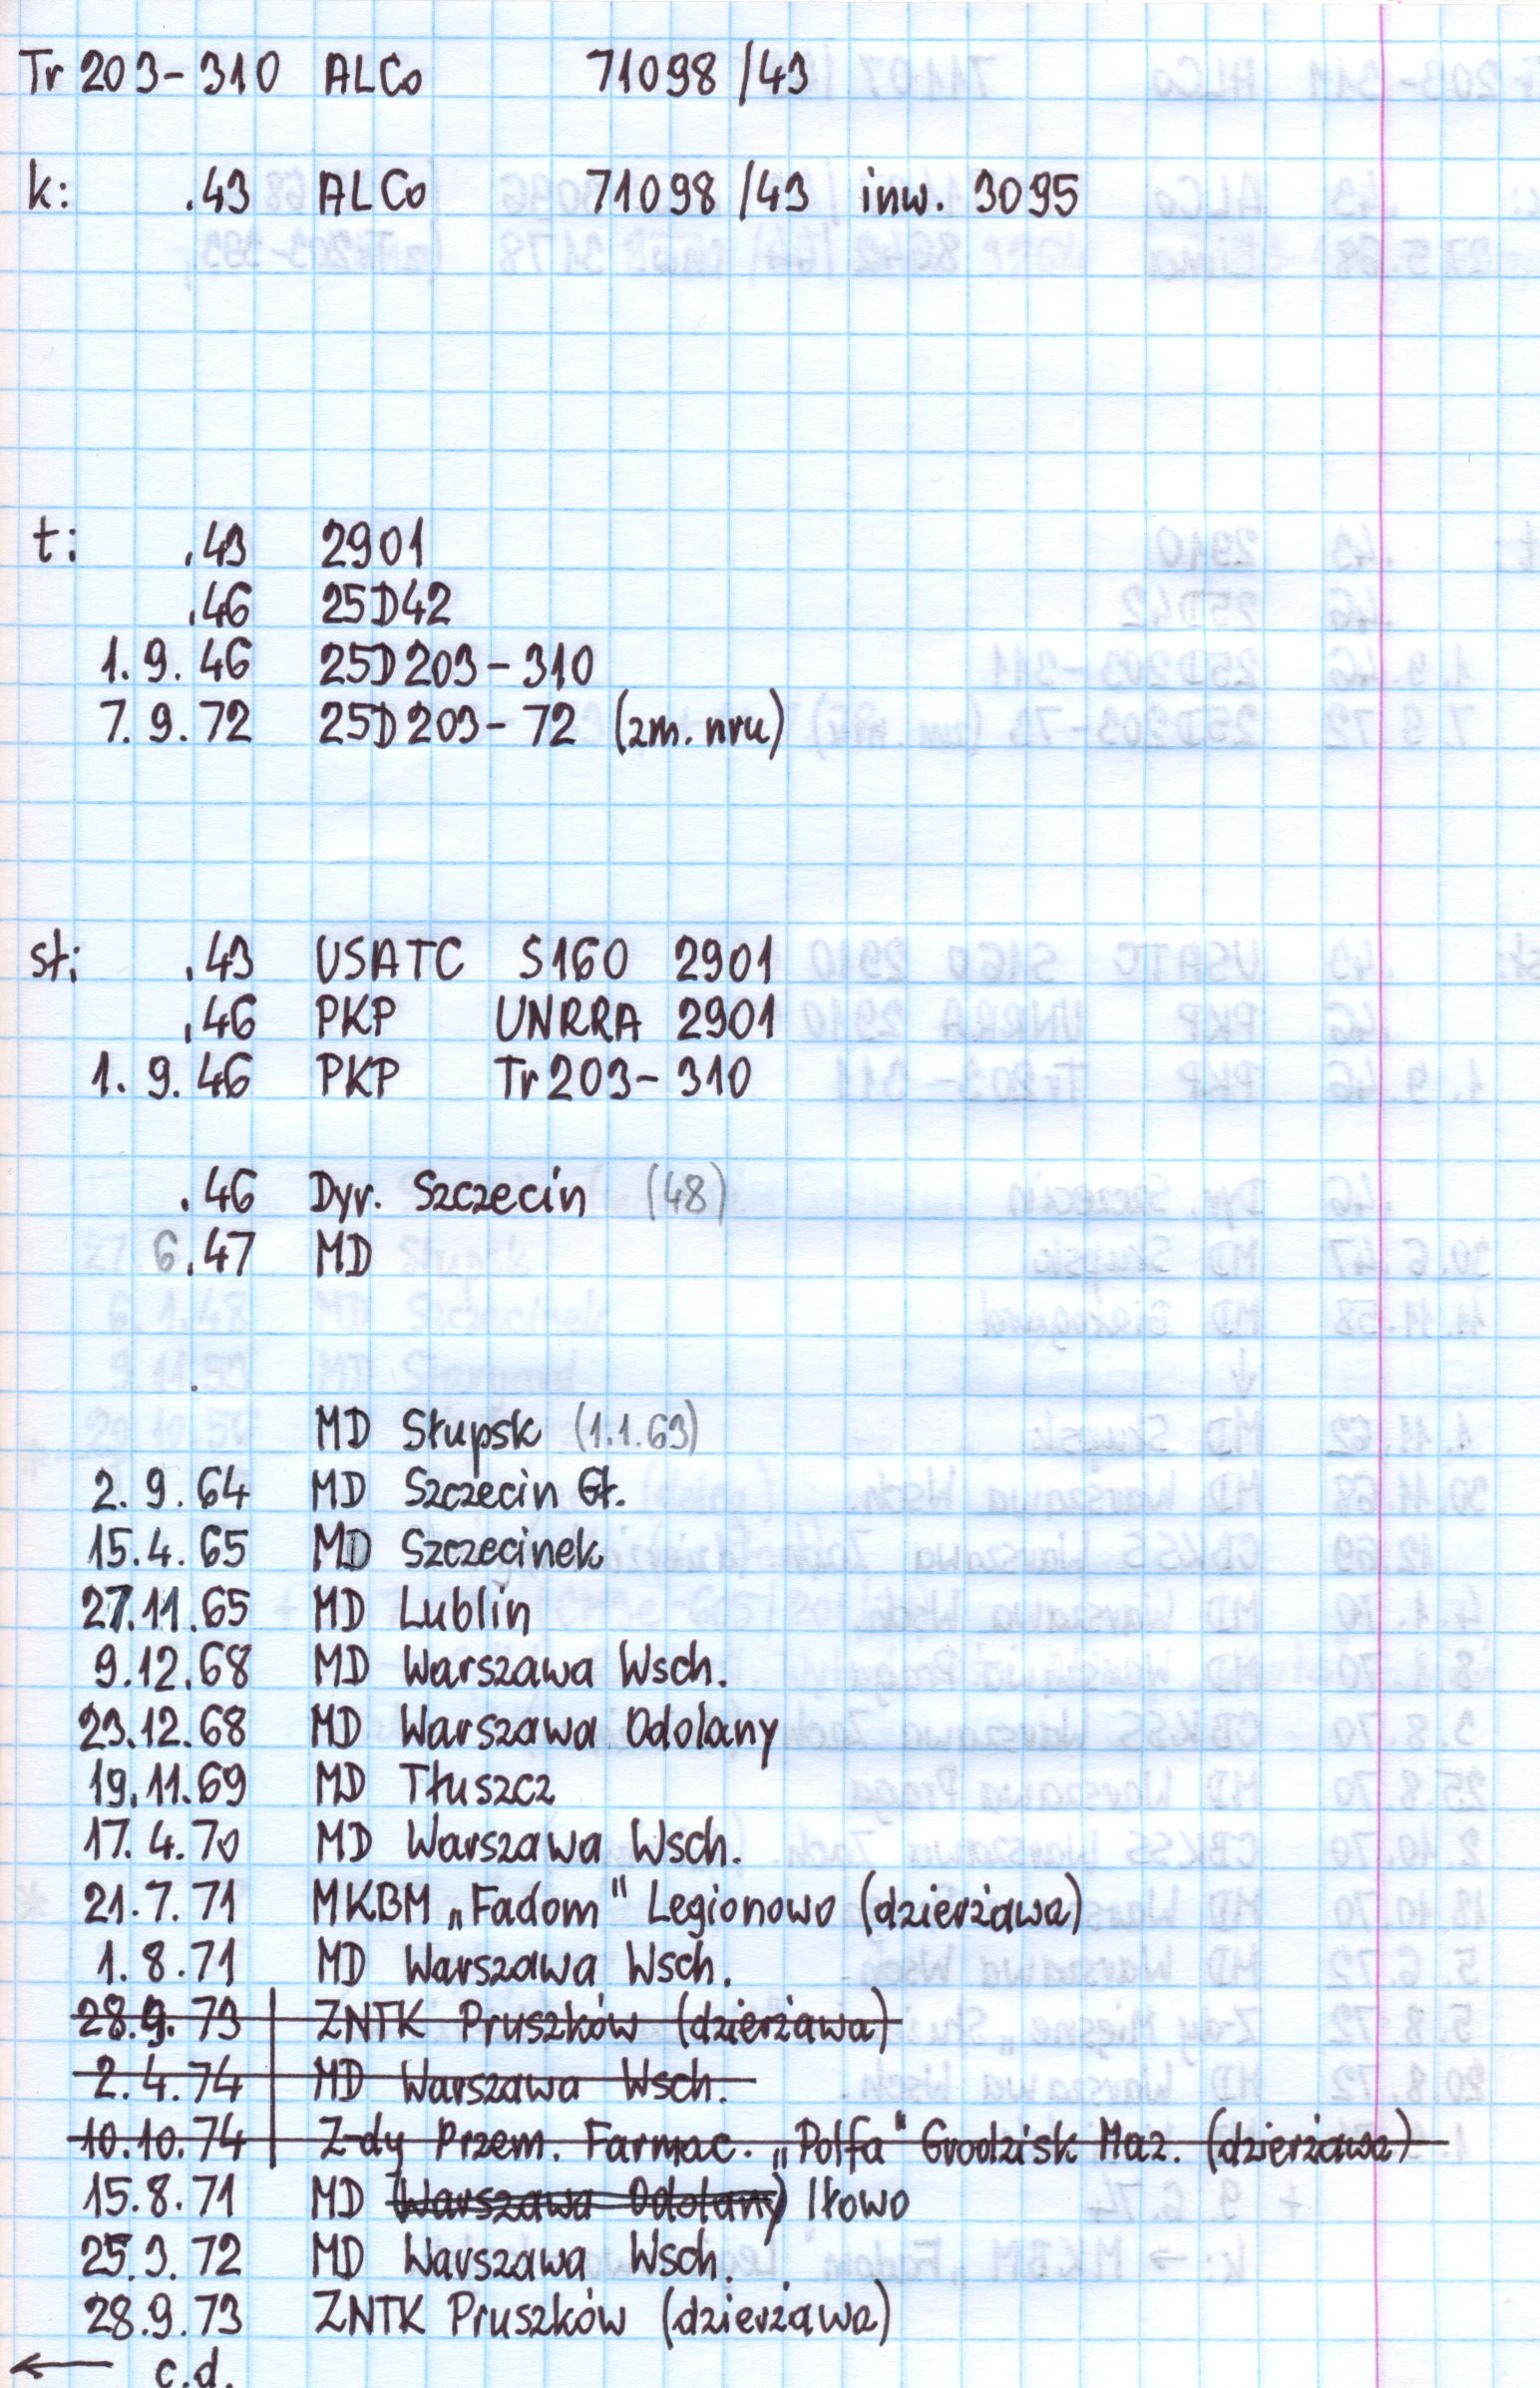 Tr 203-310 ALCo 71098/43
k: .43 ALCo 71098/43 inw. 3095
t: .43 2901
.46 25D42
1.9.46 25D203-310
7.9.72 25D203-72 (zm. nru)
st: .43 USATC S160 2901
.46 PKP UNRRA 2901
1.9.46 PKP Tr203-310
.46 Dyr. Szczecin (48)
6.47 MD
MD Słupsk (1.1.63)
2.9.64 MD Szczecin Gł.
15.4.65 MD Szczecinek
27.11.65 MD Lublin
9.12.68 MD Warszawa Wsch.
23.12.68 MD Warszawa Odolany
19.11.69 MD Tłuszcz
17.4.70 MD Warszawa Wsch.
21.7.71 MKBM „Fadom" Legionowo (dzierżawa)
1.8.71 MD Warszawa Wsch.
28.9.73 ZNTK Pruszków (dzierżawa)
2.4.74 MD Warszawa Wsch.
10.10.74 Z-dy Przem. Farmac. „Polfa" Grodzisk Maz. (dzierżawa)
15.8.71 MD (Warszawa Odolany) Iłowo
25.3.72 MD Warszawa Wsch.
28.9.73 ZNTK Pruszków (dzierżawa)
← c.d.